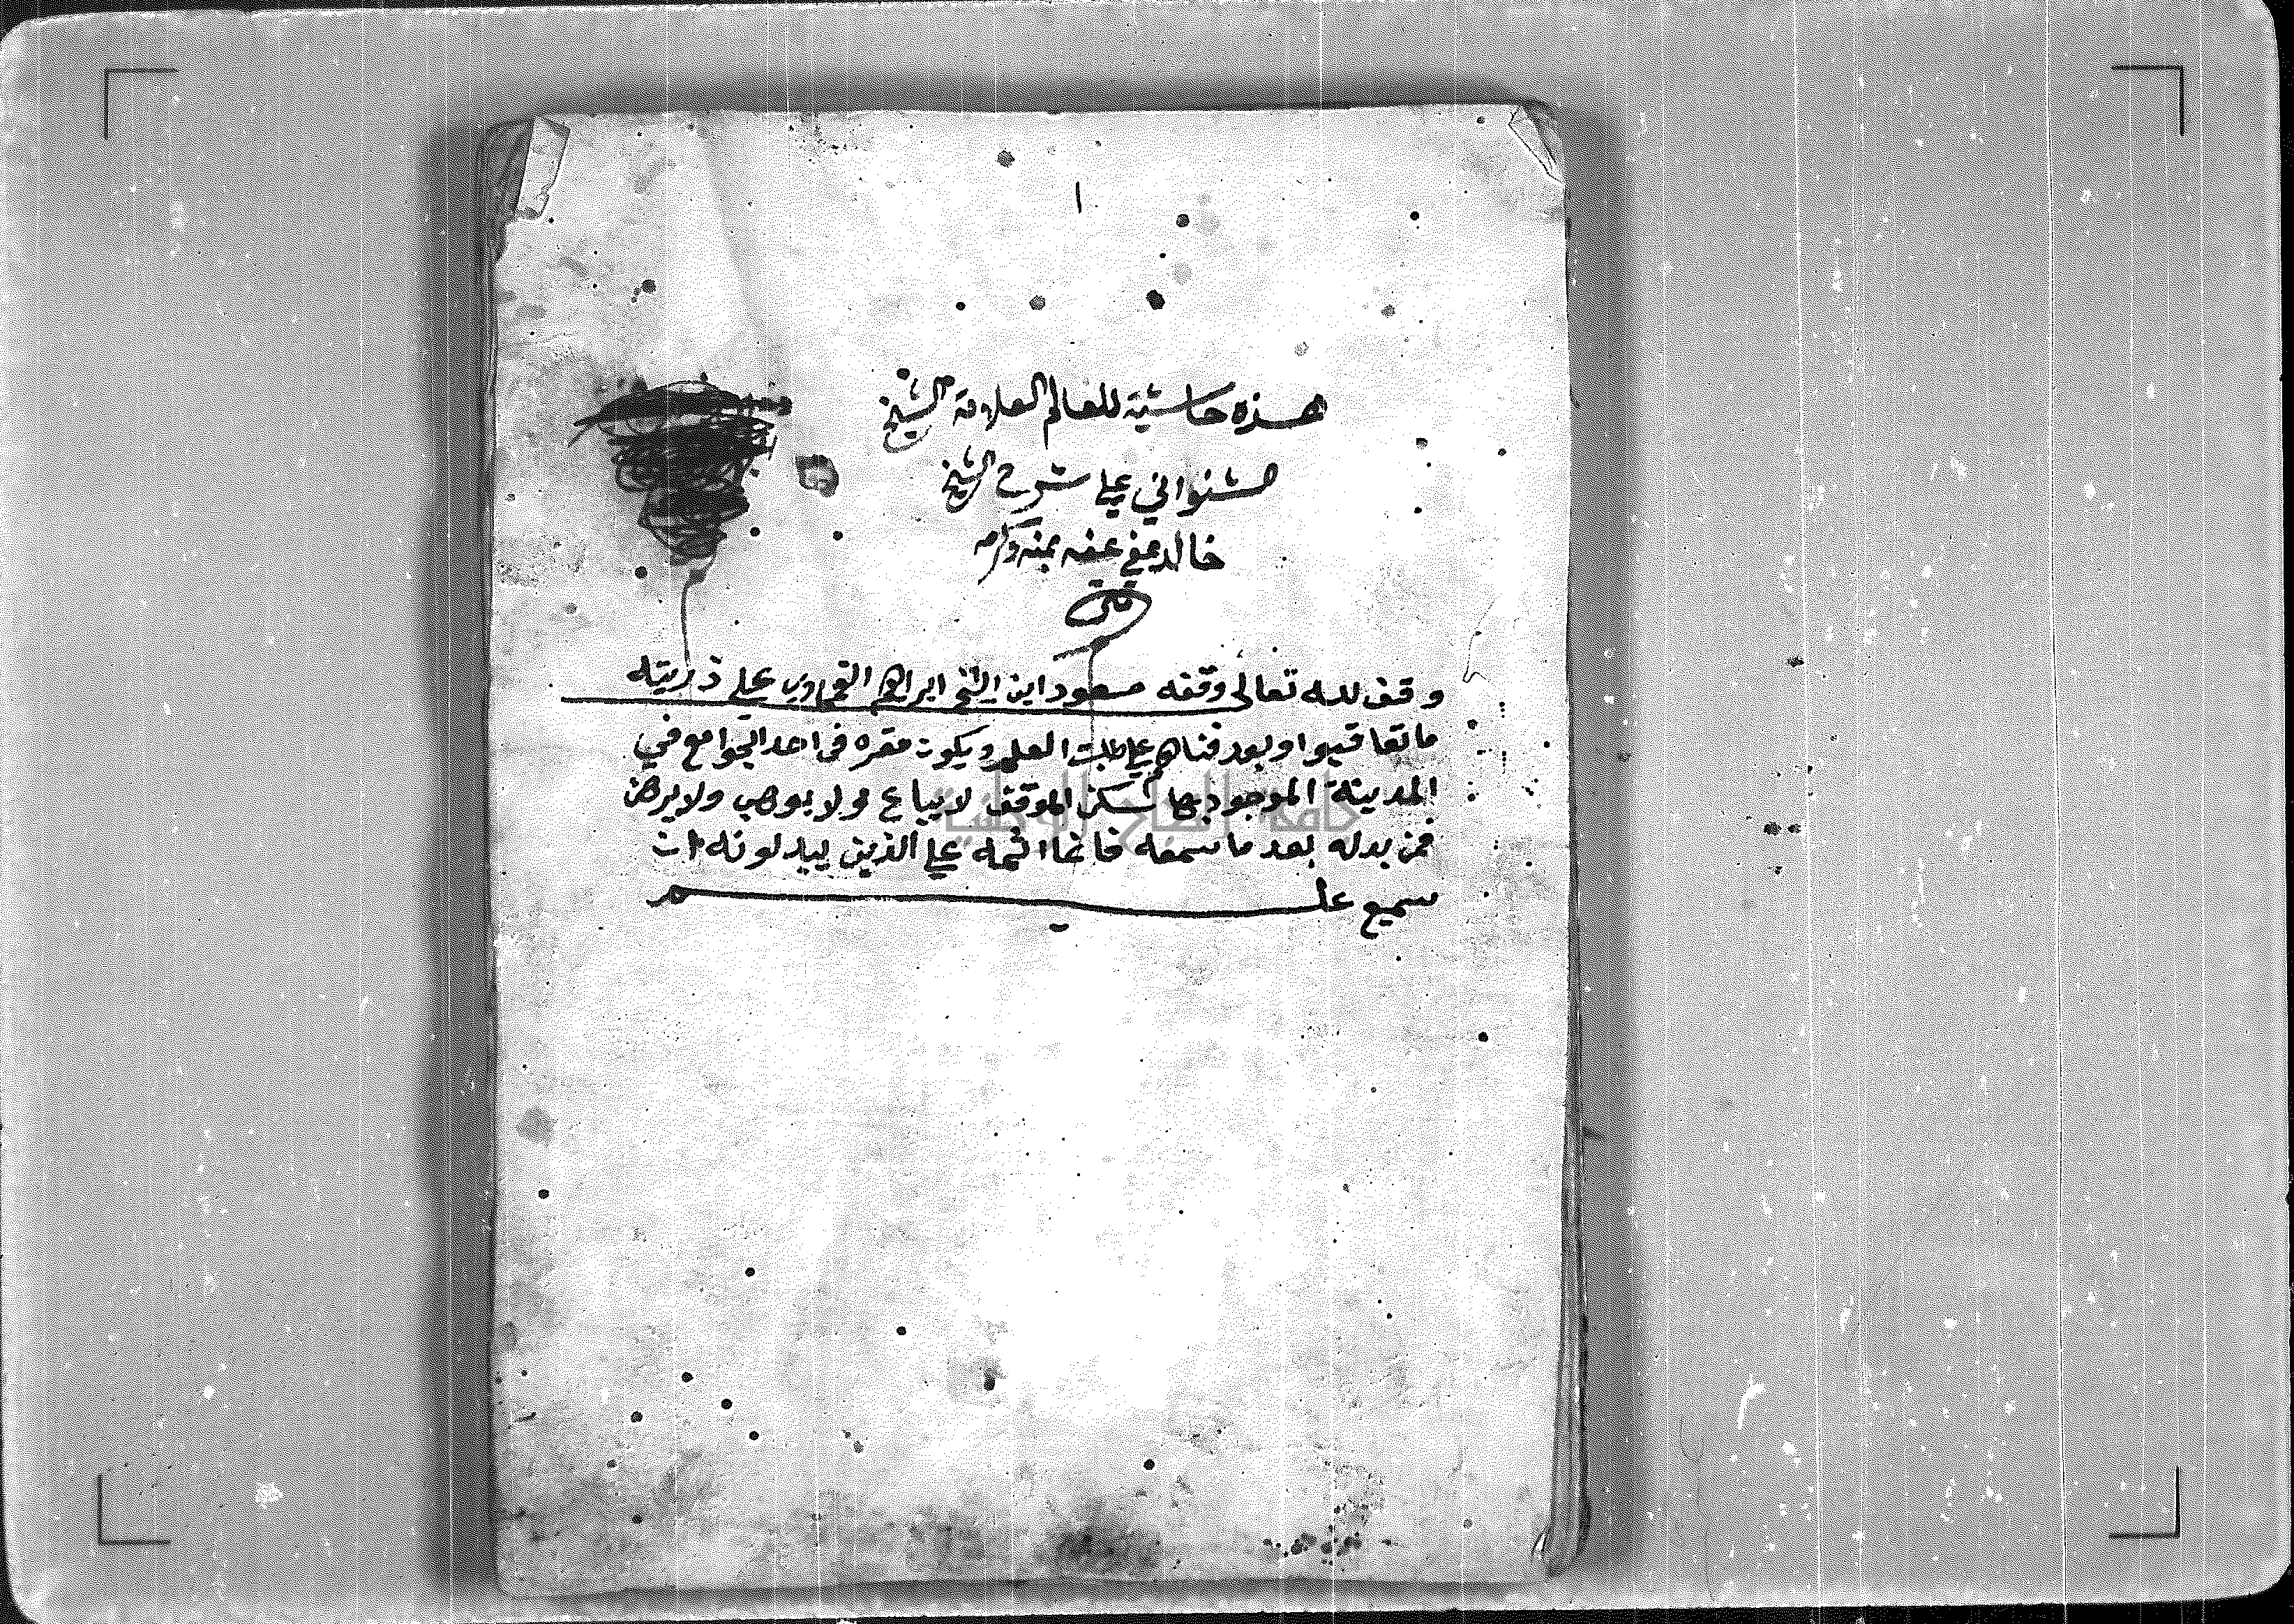 ١
هذه حاشية للعالم العلامة الشيخ
شنواني على شرح الشيخ
خالد عفي عنه بمنه وكرمه
وقف لله تعالى وقفه مسعود ابن الشيخ ابراهيم على ذريته
ما تعاقبوا وبعد فناهم على طلبت العلم ويكون مقره في احد الجوامع في
المدينة الموجود بها سكن الموقف لا يباع ولا يوهب ولا يرهن
فمن بدله بعد ما سمعه فانما اثمه على الذين يبدلونه ان
سميع عليم
جامعة النجاح الوطنية